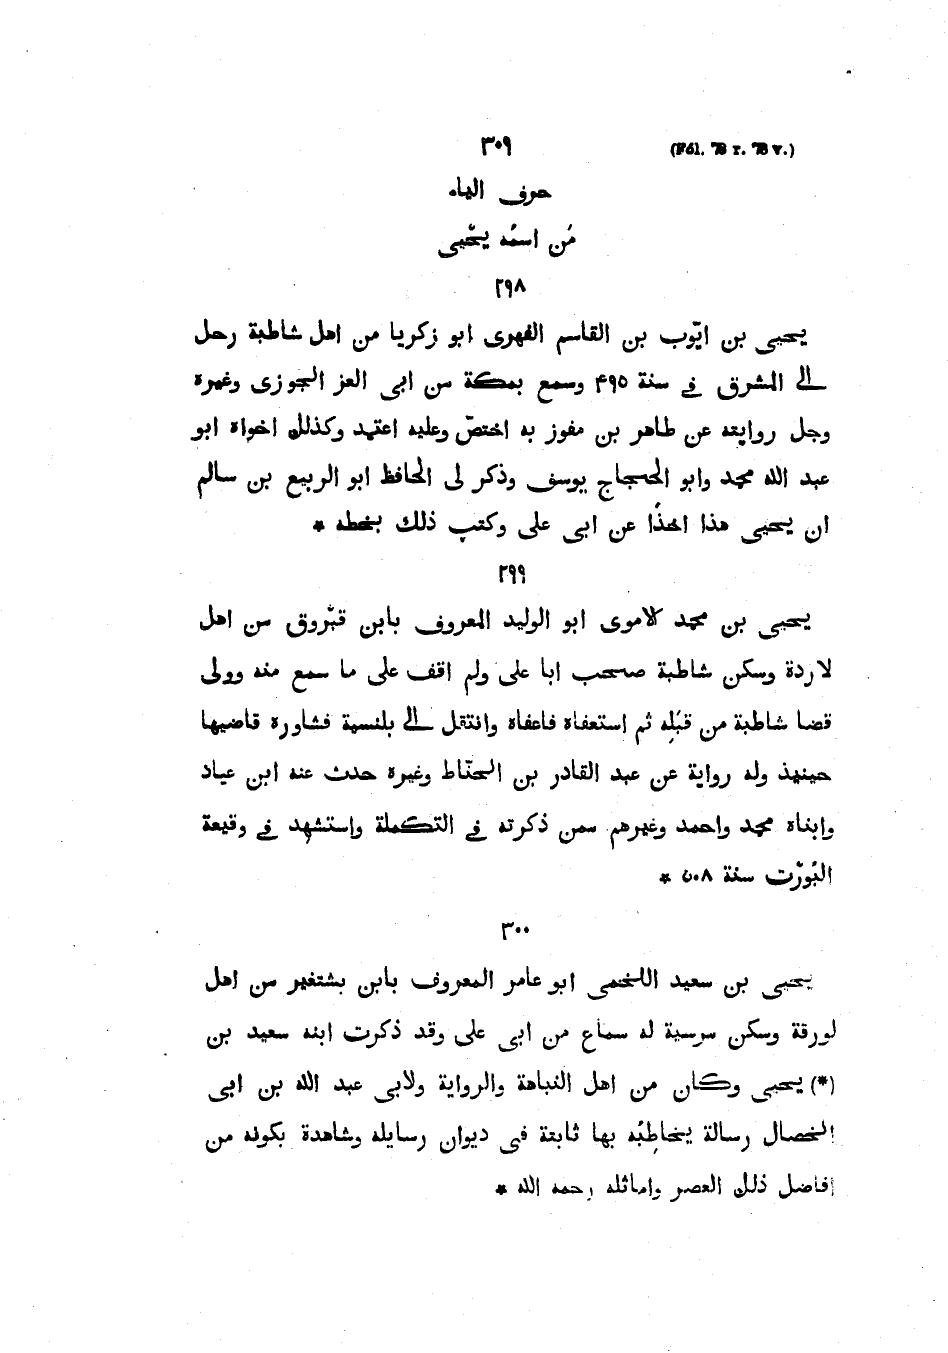 ٣٠٩ (Fól. 78 r. 78 v.)
حرف الياء
مَن اسمُه يحْيى
٢٩٨
يحيى بن ايّوب بن القاسم الفهرى ابو زكريا من اهل شاطبة رحل
الى المشرق فى سنة ۴٩٥ وسمع بمكة من ابى العز الجوزى وغيره
وجل روايته عن طاهر بن مفوز به اختصّ وعليه اعتمد وكذلك اخواه ابو
عبد الله محمد وابو الحجاج يوسف وذكر لى الحافظ ابو الربيع بن سالم
ان يحيى هذا اخذا عن ابى على وكتب ذلك بخطه *
٢٩٩
يحيى بن محمد الاموى ابو الوليد المعروف بابن قبْروق من اهل
لاردة وسكن شاطبة صحب ابا على ولم اقف على ما سمع منه وولى
قضا شاطبة من قبَلِه ثم استعفاه فاعفاه وانتقل الى بلنسية فشاوره قاضيها
حينيذ وله رواية عن عبد القادر بن الحنّاط وغيره حدث عنه ابن عياد
وابناه محمد واحمد وغيرهم ممن ذكرته فى التكملة واستشهد فى وقيعة
البُورْت سنة ٥٠٨ *
٣٠٠
يحيى بن سعيد اللخمى ابو عامر المعروف بابن بشتغير من اهل
لورقة وسكن مرسية له سماع من ابى على وقد ذكرت ابنه سعيد بن
(*) يحيى وكان من اهل النباهة والرواية ولابى عبد الله بن ابى
الخصال رسالة يخاطبُه بها ثابتة فى ديوان رسايله وشاهدة بكونه من
افاضل ذلك العصر واماثله رحمه الله *